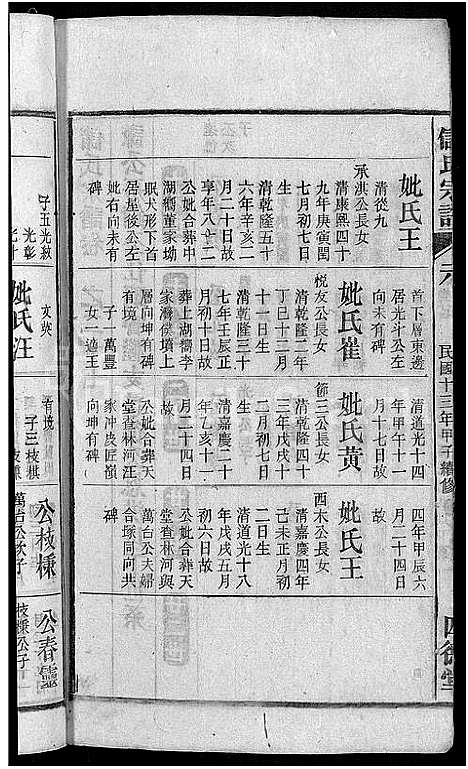 儲氏宗譜
卷六
民國十三年甲子續修
四德堂
首下層東邊
居光斗公左
向未有碑
妣氏王
承淇公長女
清從九
清康熙四十
九年庚寅閏
七月初七日
生
清乾隆五十
六年辛亥三
月二十日故
享年八十二
公妣合葬中
湖嚮董家坳
眠犬形下首
居星後公左
妣右向未有
碑
妣氏崔
悅友公長女
清乾隆二年
丁巳十二月
十一日生
清乾隆三十
七年壬辰正
月初十日故
葬上湖嚮李
家灣儂墳上
層向坤有碑
有境
子一萬豐
女一適王
清道光十四
年甲午十一
月十七日故
妣氏黃
節三公長女
清乾隆四十
三年戊戌十
二月初七日
生
清嘉慶二十
年乙亥十一
月二十四日
故
公妣合葬天
堂查林河汪
家冲皮匠嶺
向坤有碑
四年甲辰六
月二十四日
故
妣氏王
西木公長女
清嘉慶四年
己未正月初
二日生
清道光十八
年戊戌五月
初六日故
公妣合葬天
堂查林河與
萬台公夫婦
合塚同向共
碑
子五光紋
光彰
妣氏汪
文炎
有境
子三枝棋
枝棵
公枝棵
萬台公次子
公春
枝棵公子